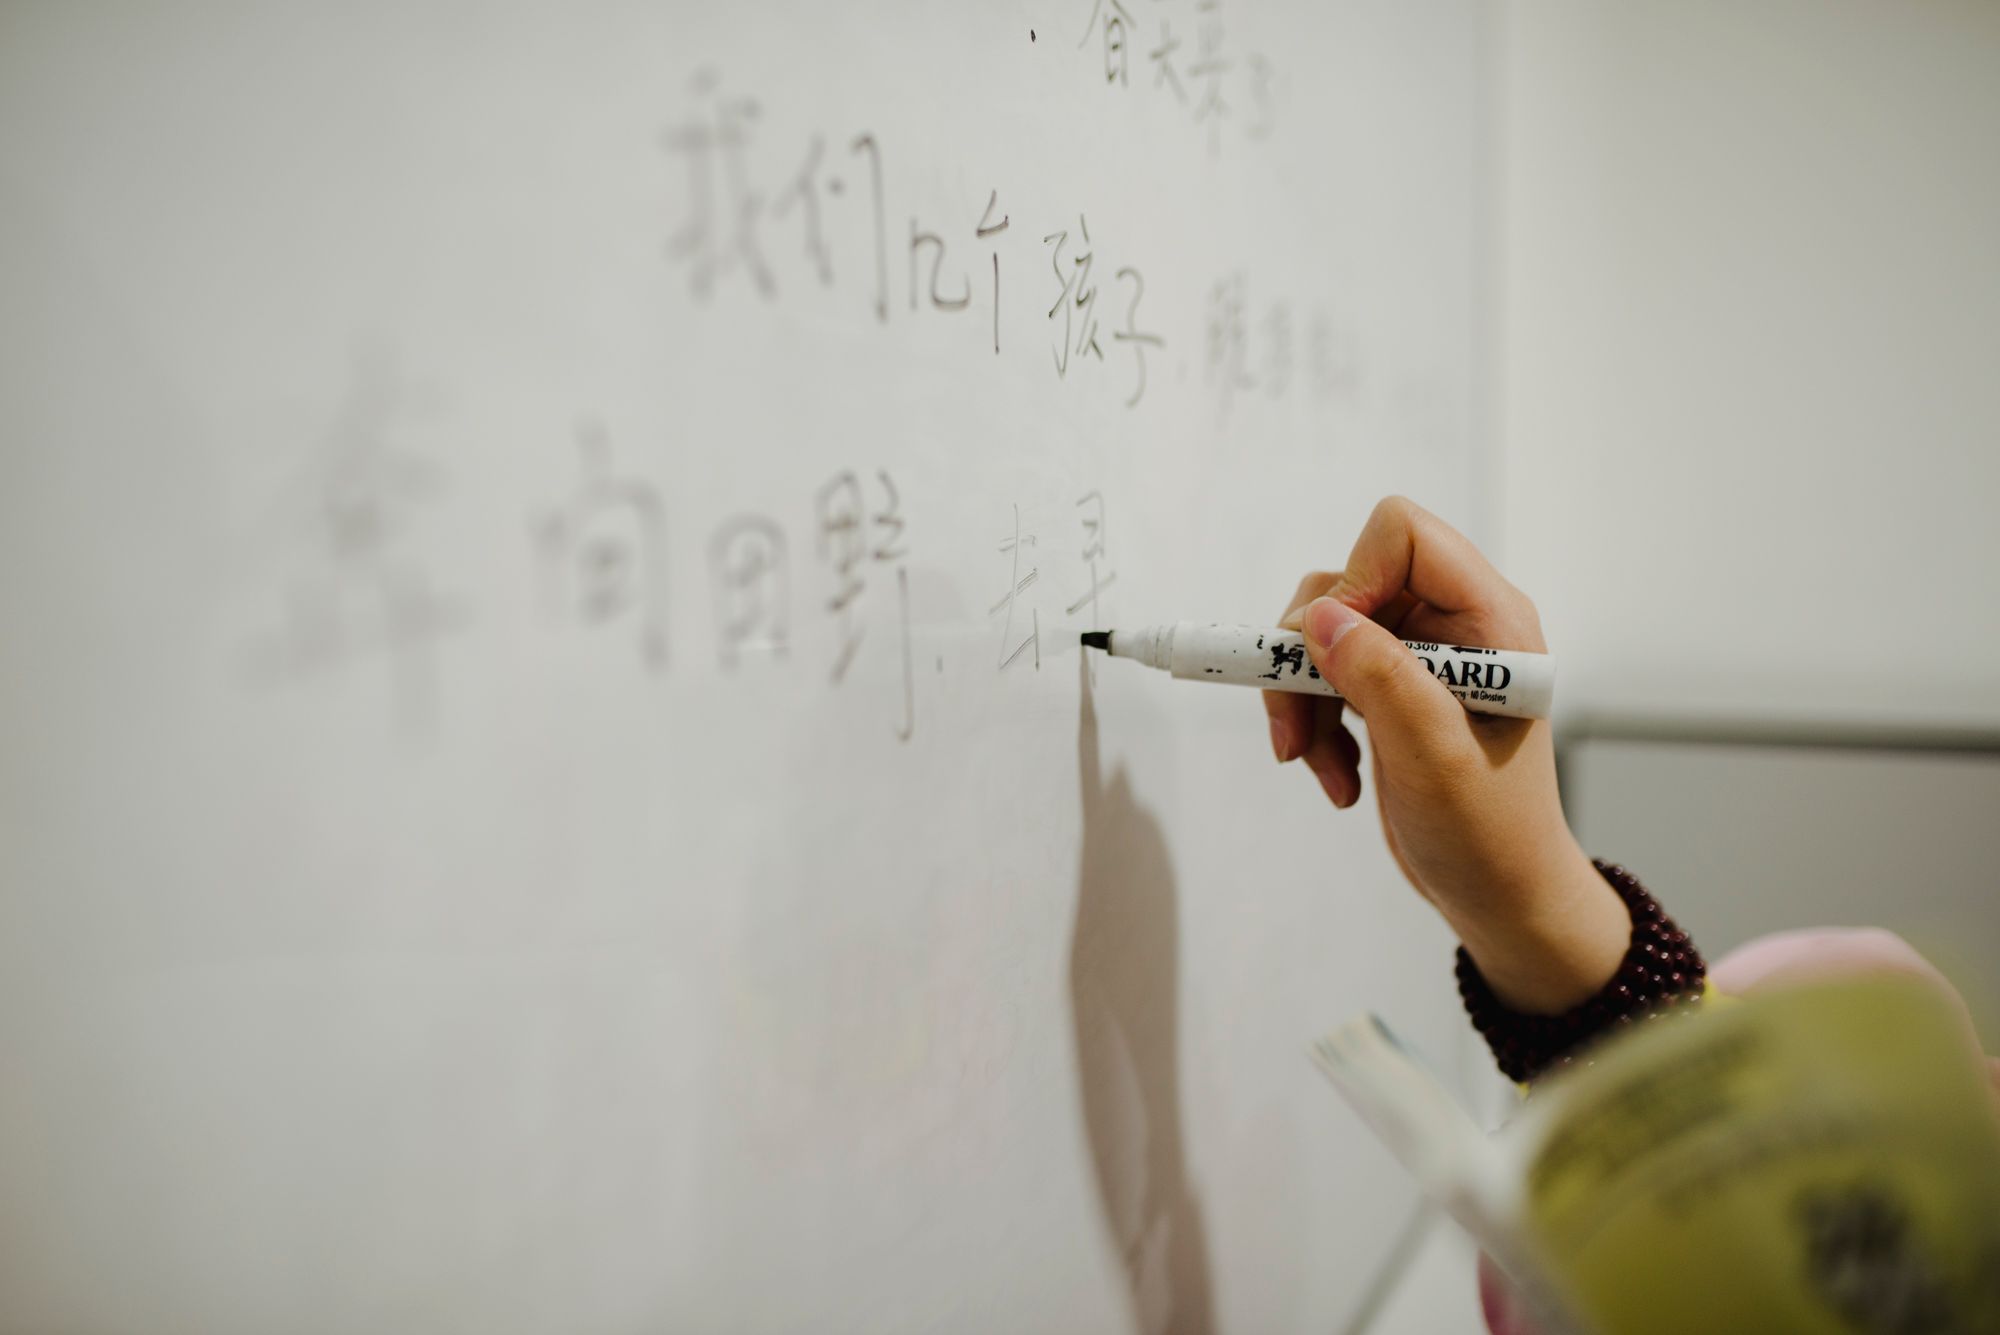 春天来了
我们几个孩子，
奔向田野，去寻
0300
OARD
No Ghosting